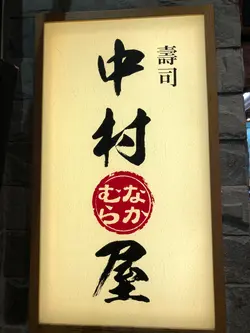 壽司
中村
なか
むら
屋